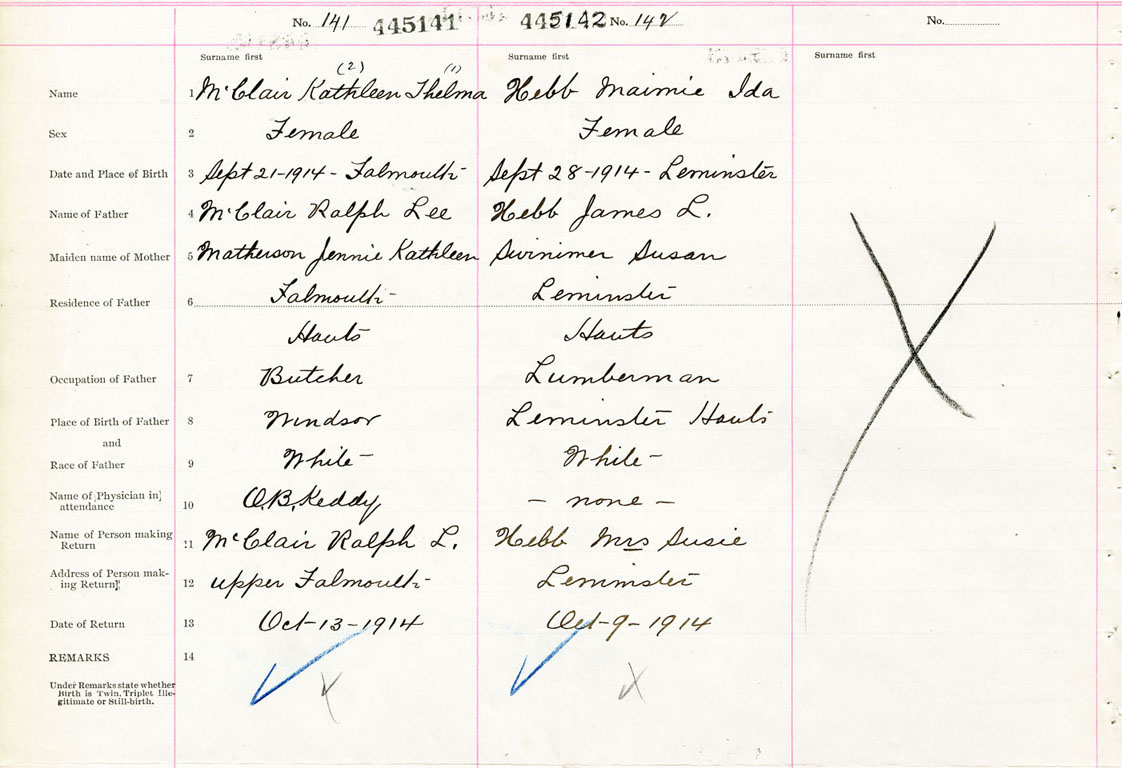 No. 141 445141 445142 No. 142 No.
Surname first Surname first Surname first
(2) (1)
Name 1 McClair Kathleen Thelma Hebb Maimie Ida
Sex 2 Female Female
Date and Place of Birth 3 Sept 21-1914 - Falmouth Sept 28-1914 - Leminster
Name of Father 4 McClair Ralph Lee Hebb James L.
Maiden name of Mother 5 Matherson Jennie Kathleen Swinimer Susan
Residence of Father 6 Falmouth Leminster
Hants Hants
Occupation of Father 7 Butcher Lumberman
Place of Birth of Father 8 Windsor Leminster Hants
and
Race of Father 9 White White
Name of Physician in
attendance 10 O.B. Keddy - none -
Name of Person making
Return 11 McClair Ralph L. Hebb Mrs Susie
Address of Person mak-
ing Return 12 upper Falmouth Leminster
Date of Return 13 Oct-13-1914 Oct-9-1914
REMARKS 14
Under Remarks state whether
Birth is Twin, Triplet Ille-
gitimate or Still-birth.